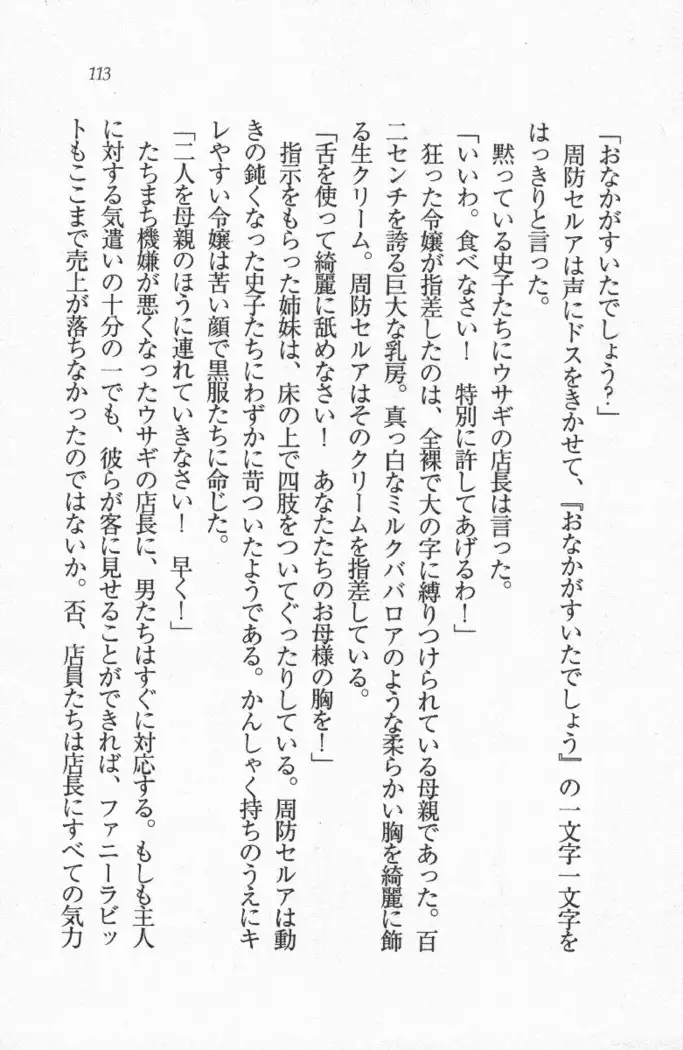 113
「おなかがすいたでしょう?」
周防セルアは声にドスをきかせて、『おなかがすいたでしょう』の一文字一文字を
はっきりと言った。
黙っている史子たちにウサギの店長は言った。
「いいわ。食べなさい！　特別に許してあげるわ！」
狂った令嬢が指差したのは、全裸で大の字に縛りつけられている母親であった。百
二センチを誇る巨大な乳房。真っ白なミルクババロアのような柔らかい胸を綺麗に飾
る生クリーム。周防セルアはそのクリームを指差している。
「舌を使って綺麗に舐めなさい！　あなたたちのお母様の胸を！」
指示をもらった姉妹は、床の上で四肢をついてぐったりしている。周防セルアは動
きの鈍くなった史子たちにわずかに苛ついたようである。かんしゃく持ちのうえにキ
レやすい令嬢は苦い顔で黒服たちに命じた。
「二人を母親のほうに連れていきなさい！　早く！」
たちまち機嫌が悪くなったウサギの店長に、男たちはすぐに対応する。もしも主人
に対する気遣いの十分の一でも、彼らが客に見せることができれば、ファニーラビッ
トもここまで売上が落ちなかったのではないか。否、店員たちは店長にすべての気力